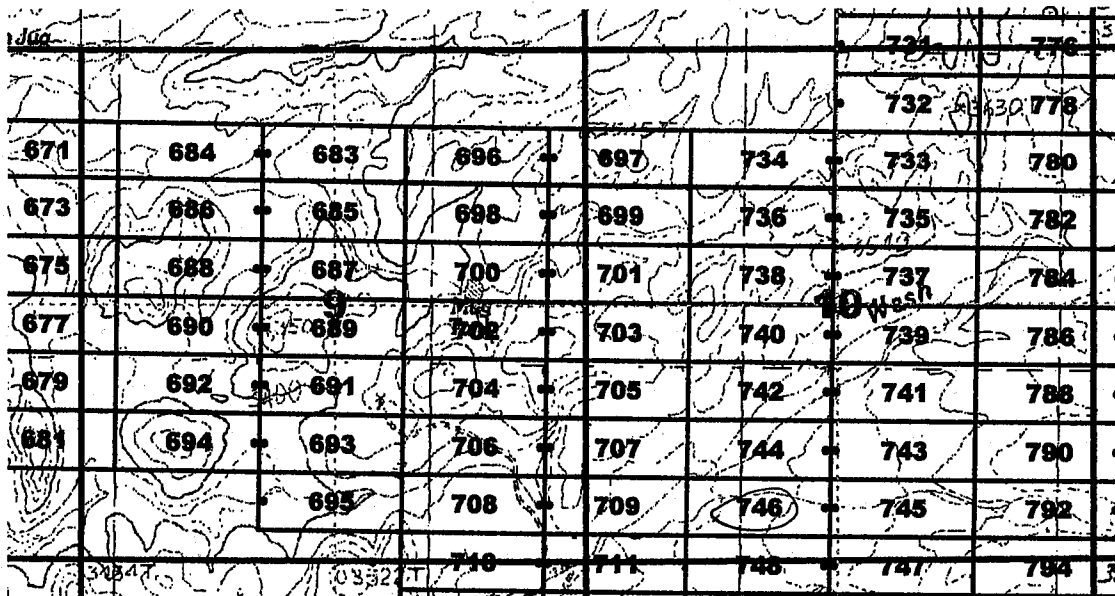 Jug
731 776
732 778
671 684 683 696 697 734 733 780
673 686 685 698 699 736 735 782
675 688 687 700 701 738 737 784
9 10 Wash
677 690 689 702 703 740 739 786
679 692 691 704 705 742 741 788
681 694 693 706 707 744 743 790
695 708 709 746 745 792
710 711 748 747 794